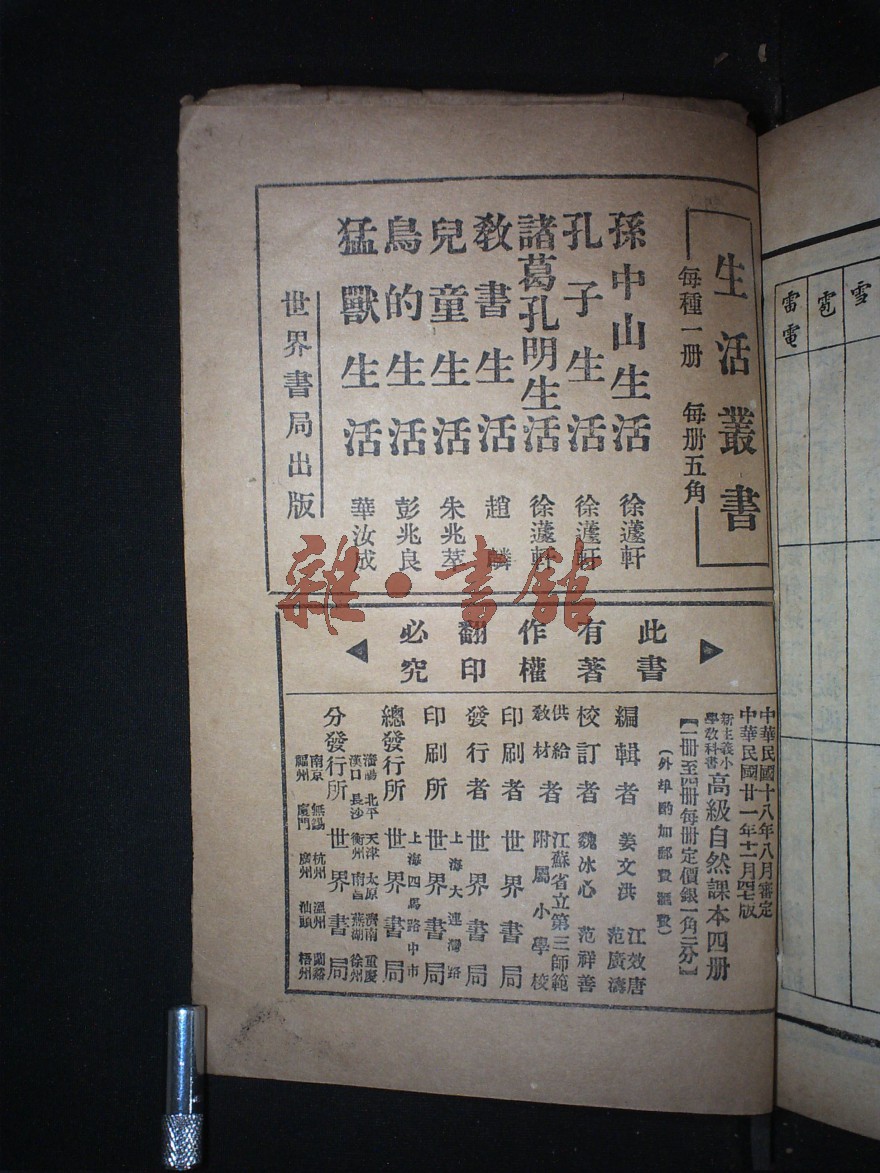 生活叢書
每種一册 每册五角
孫中山生活 徐蘧軒
孔子生活 徐蘧軒
諸葛孔明生活 徐蘧軒
教書生活 趙麟
兒童生活 朱兆萃
鳥的生活 彭兆良
猛獸生活 華汝成
世界書局出版
此書有著作權翻印必究
中華民國十八年八月審定
中華民國廿一年十二月四七版
新主義小學教科書 高級自然課本四册
【一册至四册每册定價銀一角二分】
(外埠酌加郵費滙費)
編輯者 姜文洪 江效唐 范廣濤
校訂者 魏冰心 范祥善
供給教材者 江蘇省立第三師範附屬小學校
印刷者 世界書局
發行者 世界書局
印刷所 上海大連灣路 世界書局
總發行所 上海四馬路中市 世界書局
分發行所 瀋陽 北平 天津 太原 濟南 重慶
漢口 長沙 衡州 南昌 蕪湖 徐州
南京 無錫 杭州 溫州 蘭谿
福州 廈門 廣州 汕頭 梧州
世界書局
雜·書館
雪
雹
雷電